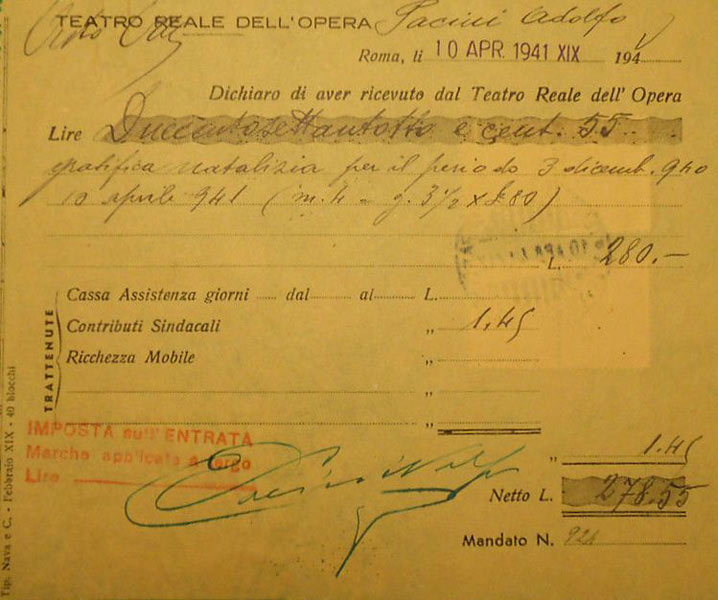 TEATRO REALE DELL'OPERA Pacini Adolfo
Roma, li 10 APR. 1941 XIX 194
Dichiaro di aver ricevuto dal Teatro Reale dell'Opera
Lire Duecentosettantotto e cent. 55.-
gratifica natalizia per il periodo 3 dicemb. 940
10 aprile 941 (m. 4 = g. 3½ x £ 80)
L. 280.-
TRATTENUTE
Cassa Assistenza giorni dal al L.
Contributi Sindacali „ 1.45
Ricchezza Mobile „
„
„
IMPOSTA sull'ENTRATA
Marche applicate a tergo
Lire
„ 1.45
Netto L. 278.55
Mandato N.
Tip. Nava e C. - Febbraio XIX - 40 blocchi